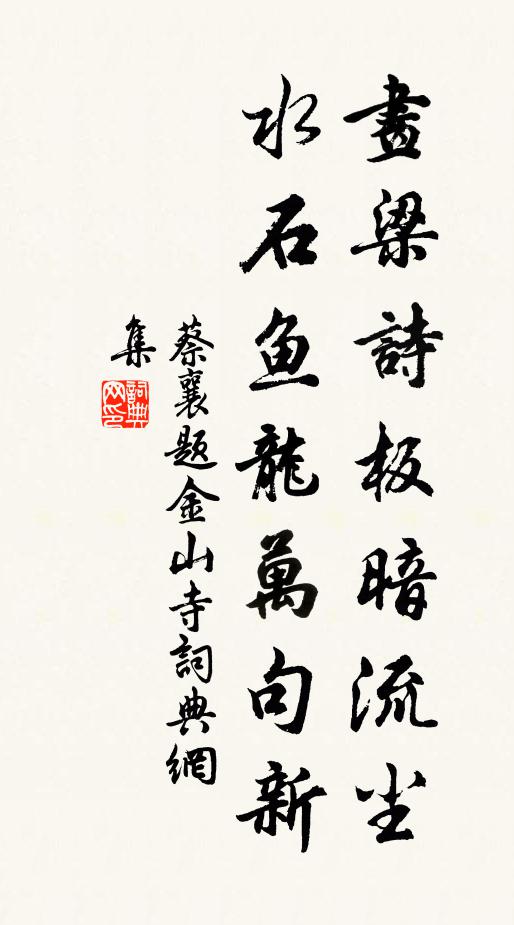 畫梁詩板暗流尘
水石鱼龍萬句新
蔡襄题金山寺詞典網
集
詞典网印